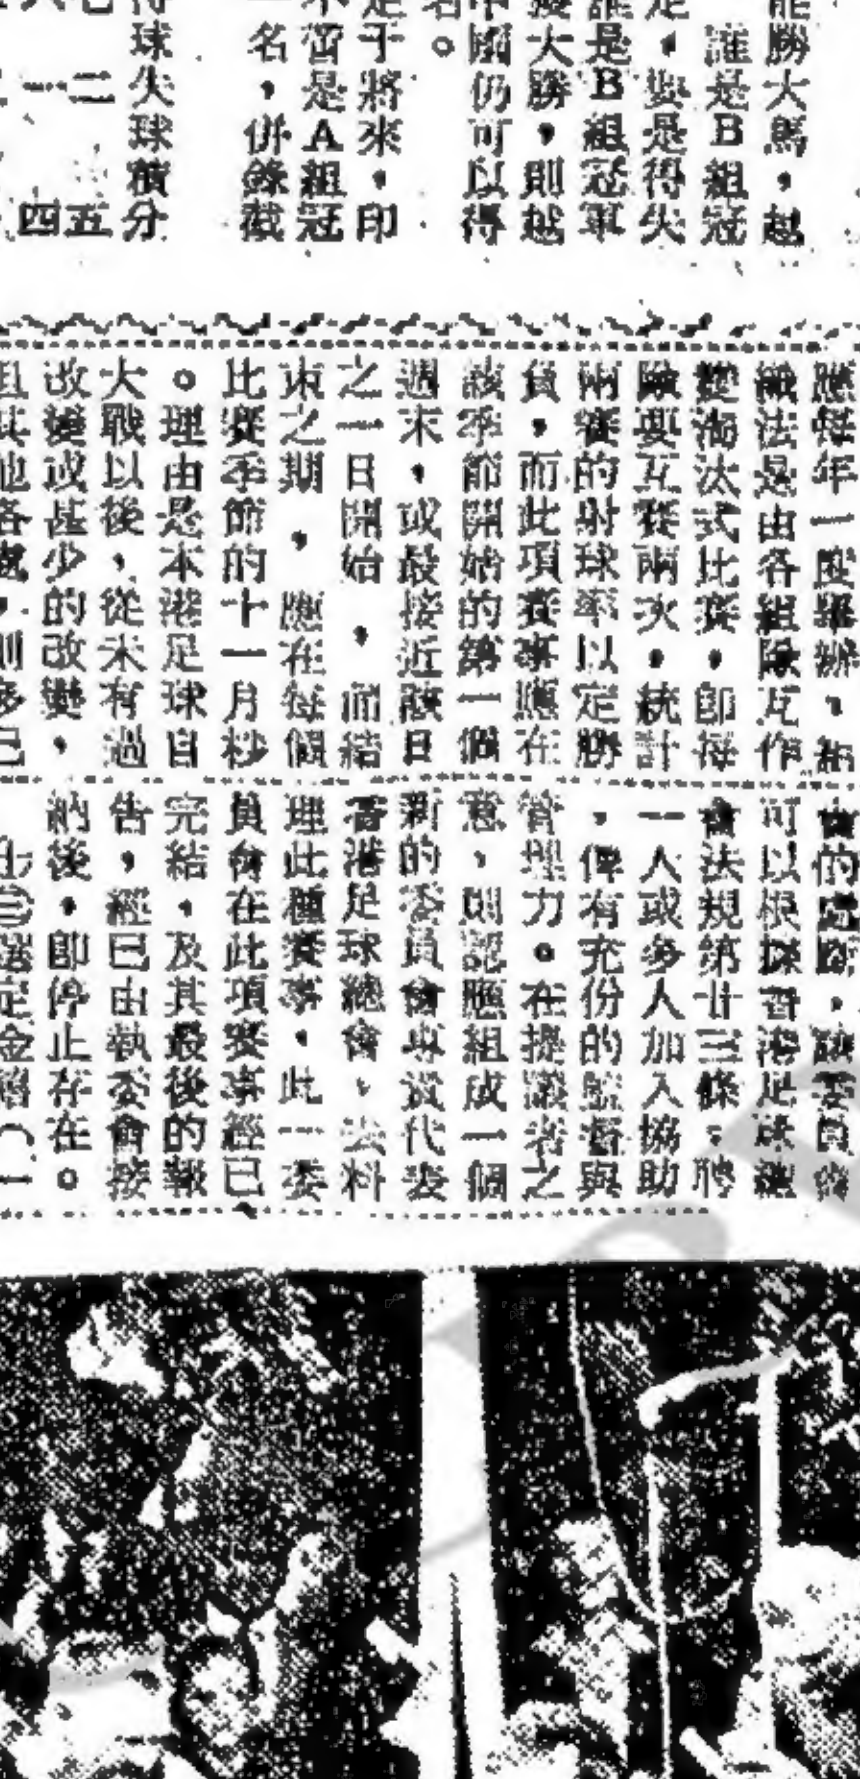 能勝大馬，越
誰是B組冠
定，要是得失
誰是B組冠軍
大勝，則越
中國仍可以得
名。
定于將來，印
不啻是A組冠
一名，併錄截
得球失球積分
七 二 五
一 四
應每年一度舉辦，組
織法是由各組隊互作
雙淘汰式比賽，即每
隊要互賽兩次，統計
兩賽的射球率以定勝
負，而此項賽事應在
該季節開始的第一個
週末，或最接近該日
之一日開始，而結
束之期，應在每個
比賽季節的十一月杪
。理由是本港足球自
大戰以後，從未有過
改變或甚少的改變，
且其他各處，則多已
會的處際，該委員會
可以根據香港足球總
會法規第廿三條，聘
一人或多人加入協助
，俾有充份的監督與
管理力。在提議者之
意，則認應組成一個
新的委員會專責代表
香港足球總會，去料
理此種賽事，此一委
員會在此項賽事經已
完結，及其最後的報
告，經已由執委會接
納後，即停止存在。
選定金禧（一